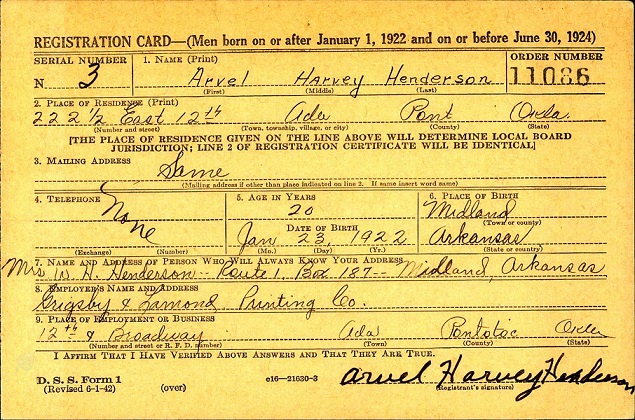 REGISTRATION CARD—(Men born on or after January 1, 1922 and on or before June 30, 1924)
SERIAL NUMBER 1. NAME (Print) ORDER NUMBER
N 3 Arvel Harvey Henderson 11086
(First) (Middle) (Last)
2. PLACE OF RESIDENCE (Print)
222 1/2 East 12th Ada Pont Okla.
(Number and street) (Town, township, village, or city) (County) (State)
[THE PLACE OF RESIDENCE GIVEN ON THE LINE ABOVE WILL DETERMINE LOCAL BOARD
JURISDICTION; LINE 2 OF REGISTRATION CERTIFICATE WILL BE IDENTICAL]
3. MAILING ADDRESS
Same
(Mailing address if other than place indicated on line 2. If same insert word same)
4. TELEPHONE 5. AGE IN YEARS 6. PLACE OF BIRTH
None 20 Midland
DATE OF BIRTH (Town or county)
Jan 23, 1922 Arkansas
(Exchange) (Number) (Mo.) (Day) (Yr.) (State or country)
7. NAME AND ADDRESS OF PERSON WHO WILL ALWAYS KNOW YOUR ADDRESS
Mrs W. H. Henderson -- Route 1, Box 187 -- Midland, Arkansas
8. EMPLOYER'S NAME AND ADDRESS
Grigsby & Lamond Printing Co.
9. PLACE OF EMPLOYMENT OR BUSINESS
12th & Broadway Ada Pontotoc Okla
(Number and street or R. F. D. number) (Town) (County) (State)
I AFFIRM THAT I HAVE VERIFIED ABOVE ANSWERS AND THAT THEY ARE TRUE.
D. S. S. Form 1 e16—21630-3 Arvel Harvey Henderson
(Revised 6-1-42) (over) (Registrant's signature)